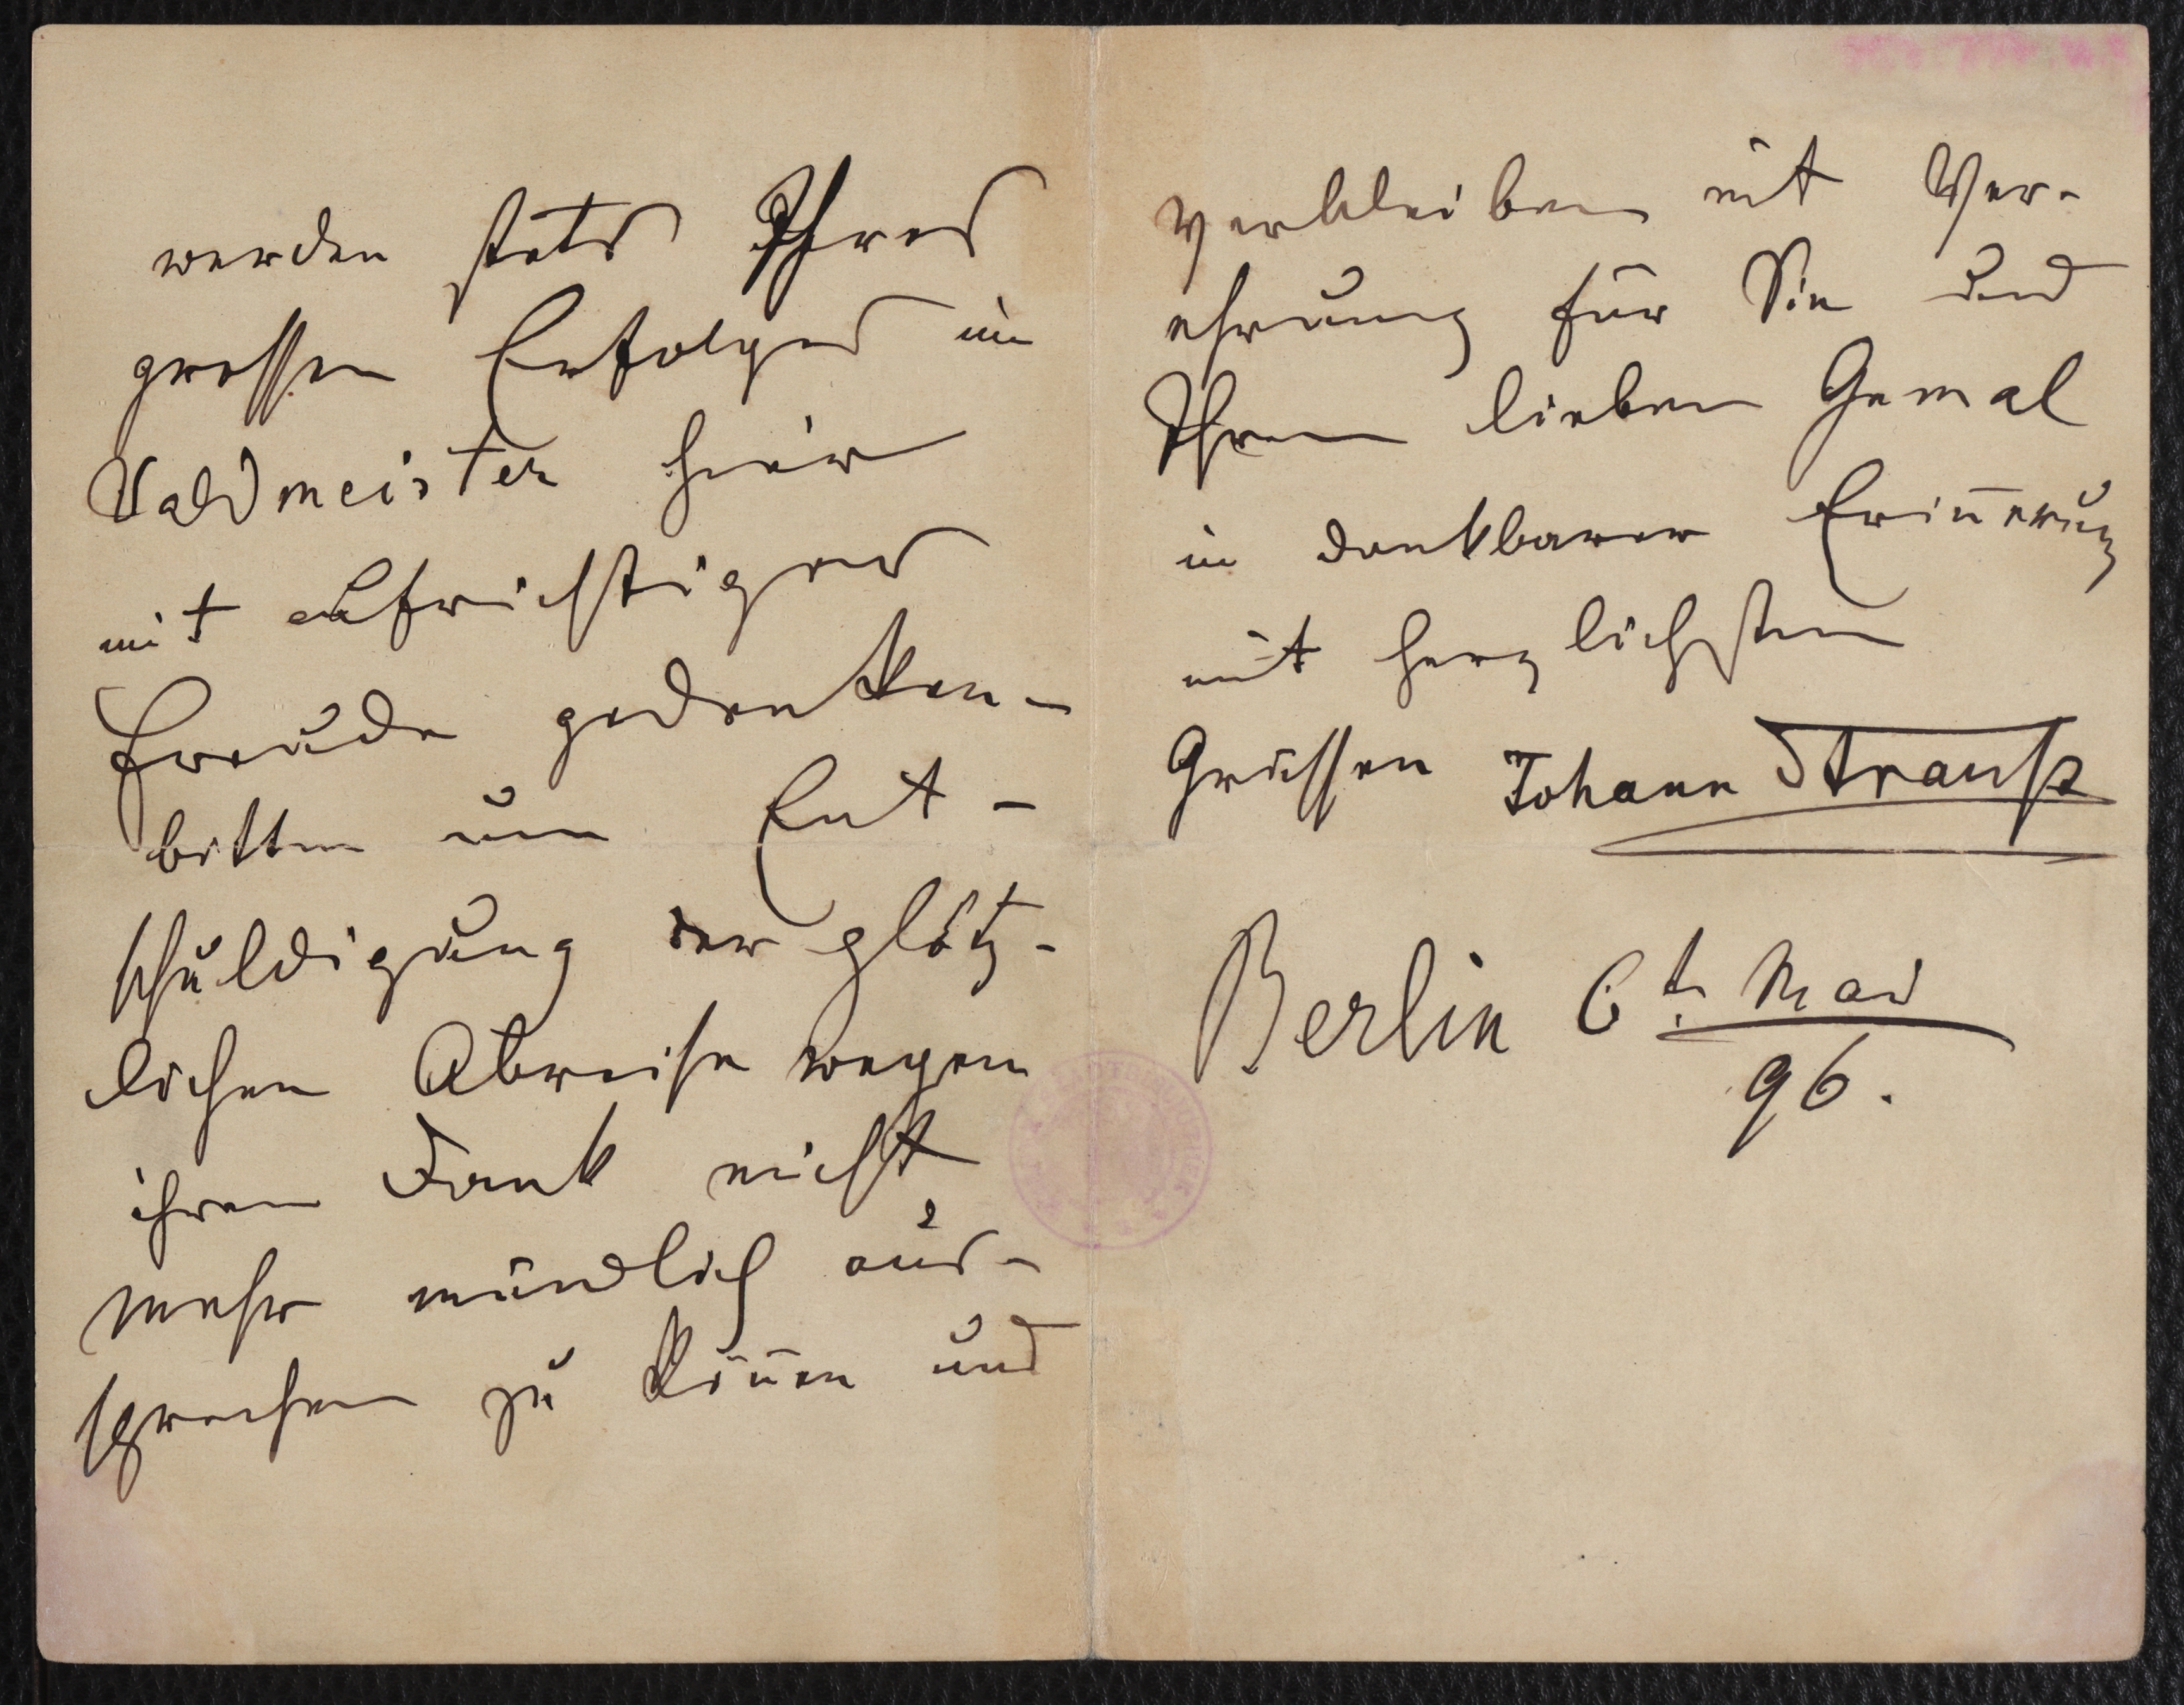 werden stets Ihres
grossen Erfolges im
Waldmeister hier
mit aufrichtiger
Freude gedenken -
bitten um Ent -
schuldigung der plötz -
lichen Abreise wegen
ihren Dank nicht
mehr mündlich aus -
sprechen zu können und
verbleiben mit Ver -
ehrung für Sie und
Ihren lieben Gemal
in dankbarer Erinnerung
mit herzlichsten
Grüssen Johann Strauß
Berlin 6t. Mai
96.